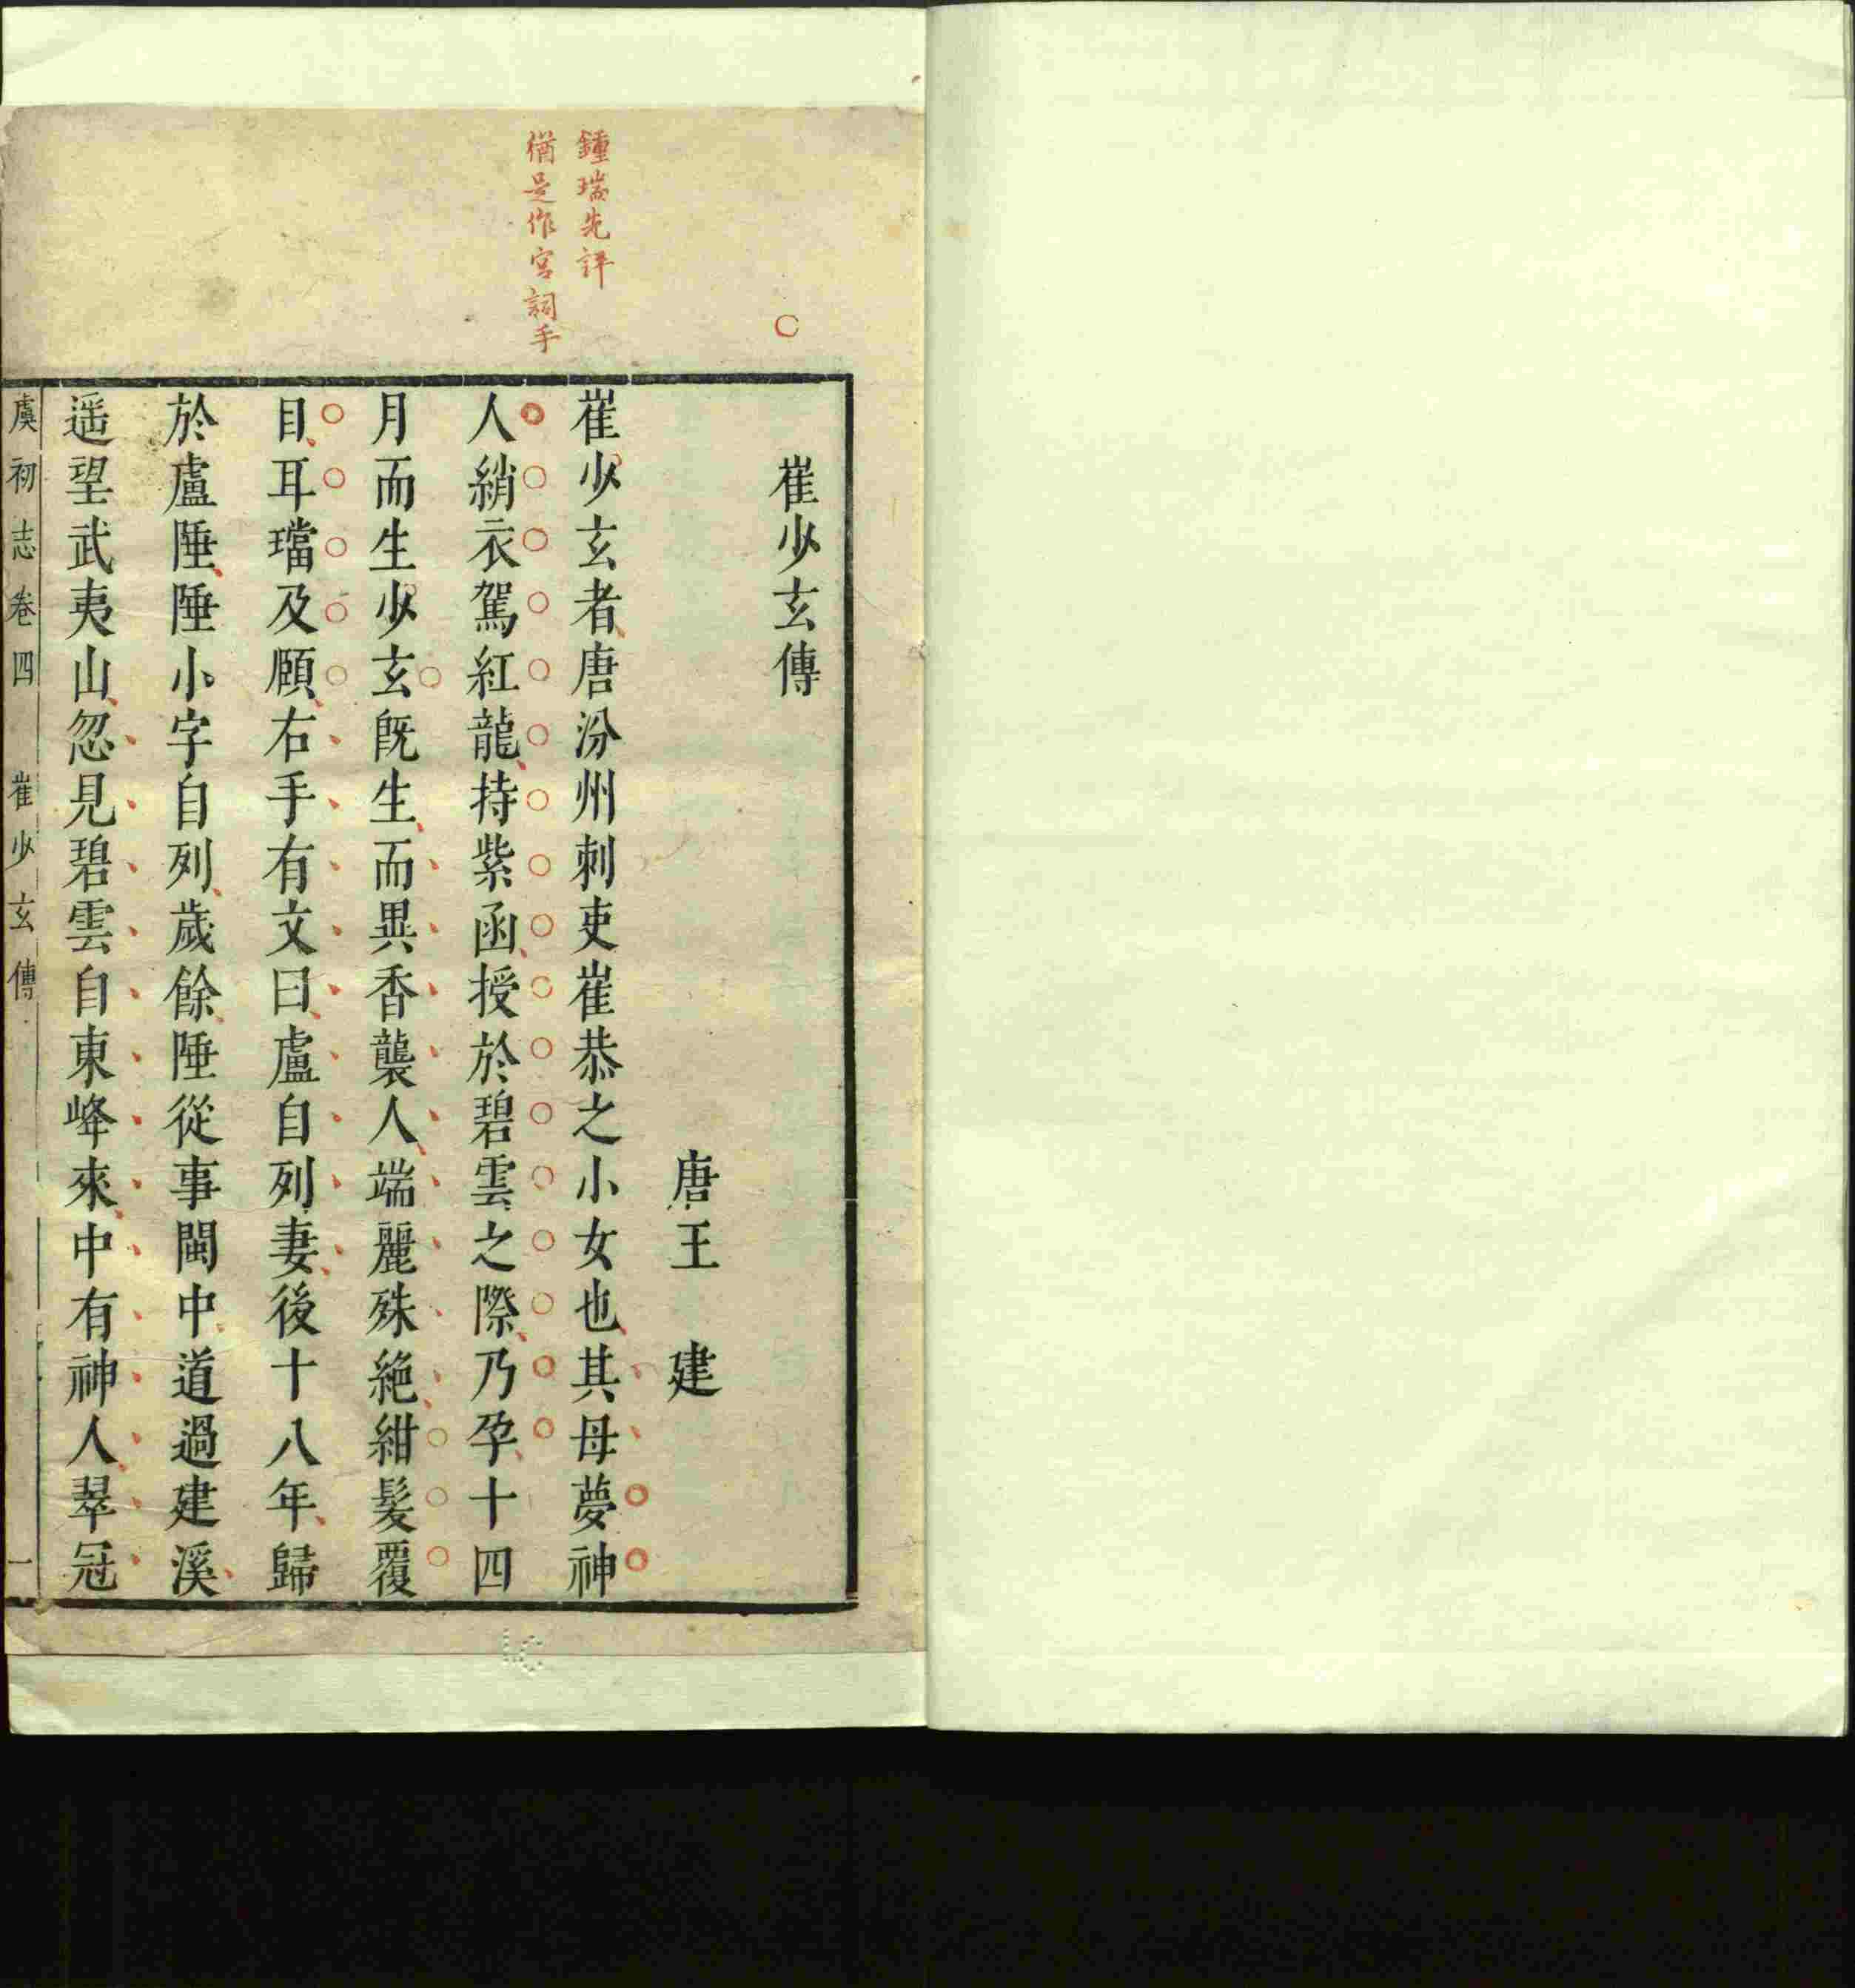 崔少玄傳
唐王　建
鍾瑞先評
猶是作宮詞手
崔少玄者唐汾州刺吏崔恭之小女也其母夢神
人綃衣駕紅龍持紫函授於碧雲之際乃孕十四
月而生少玄既生而異香襲人端麗殊絕紺髮覆
目耳璫及頤右手有文曰盧自列妻後十八年歸
於盧陲陲小字自列歲餘陲從事閩中道過建溪
遥望武夷山忽見碧雲自東峰來中有神人翠冠
虞初志卷四　崔少玄傳　一